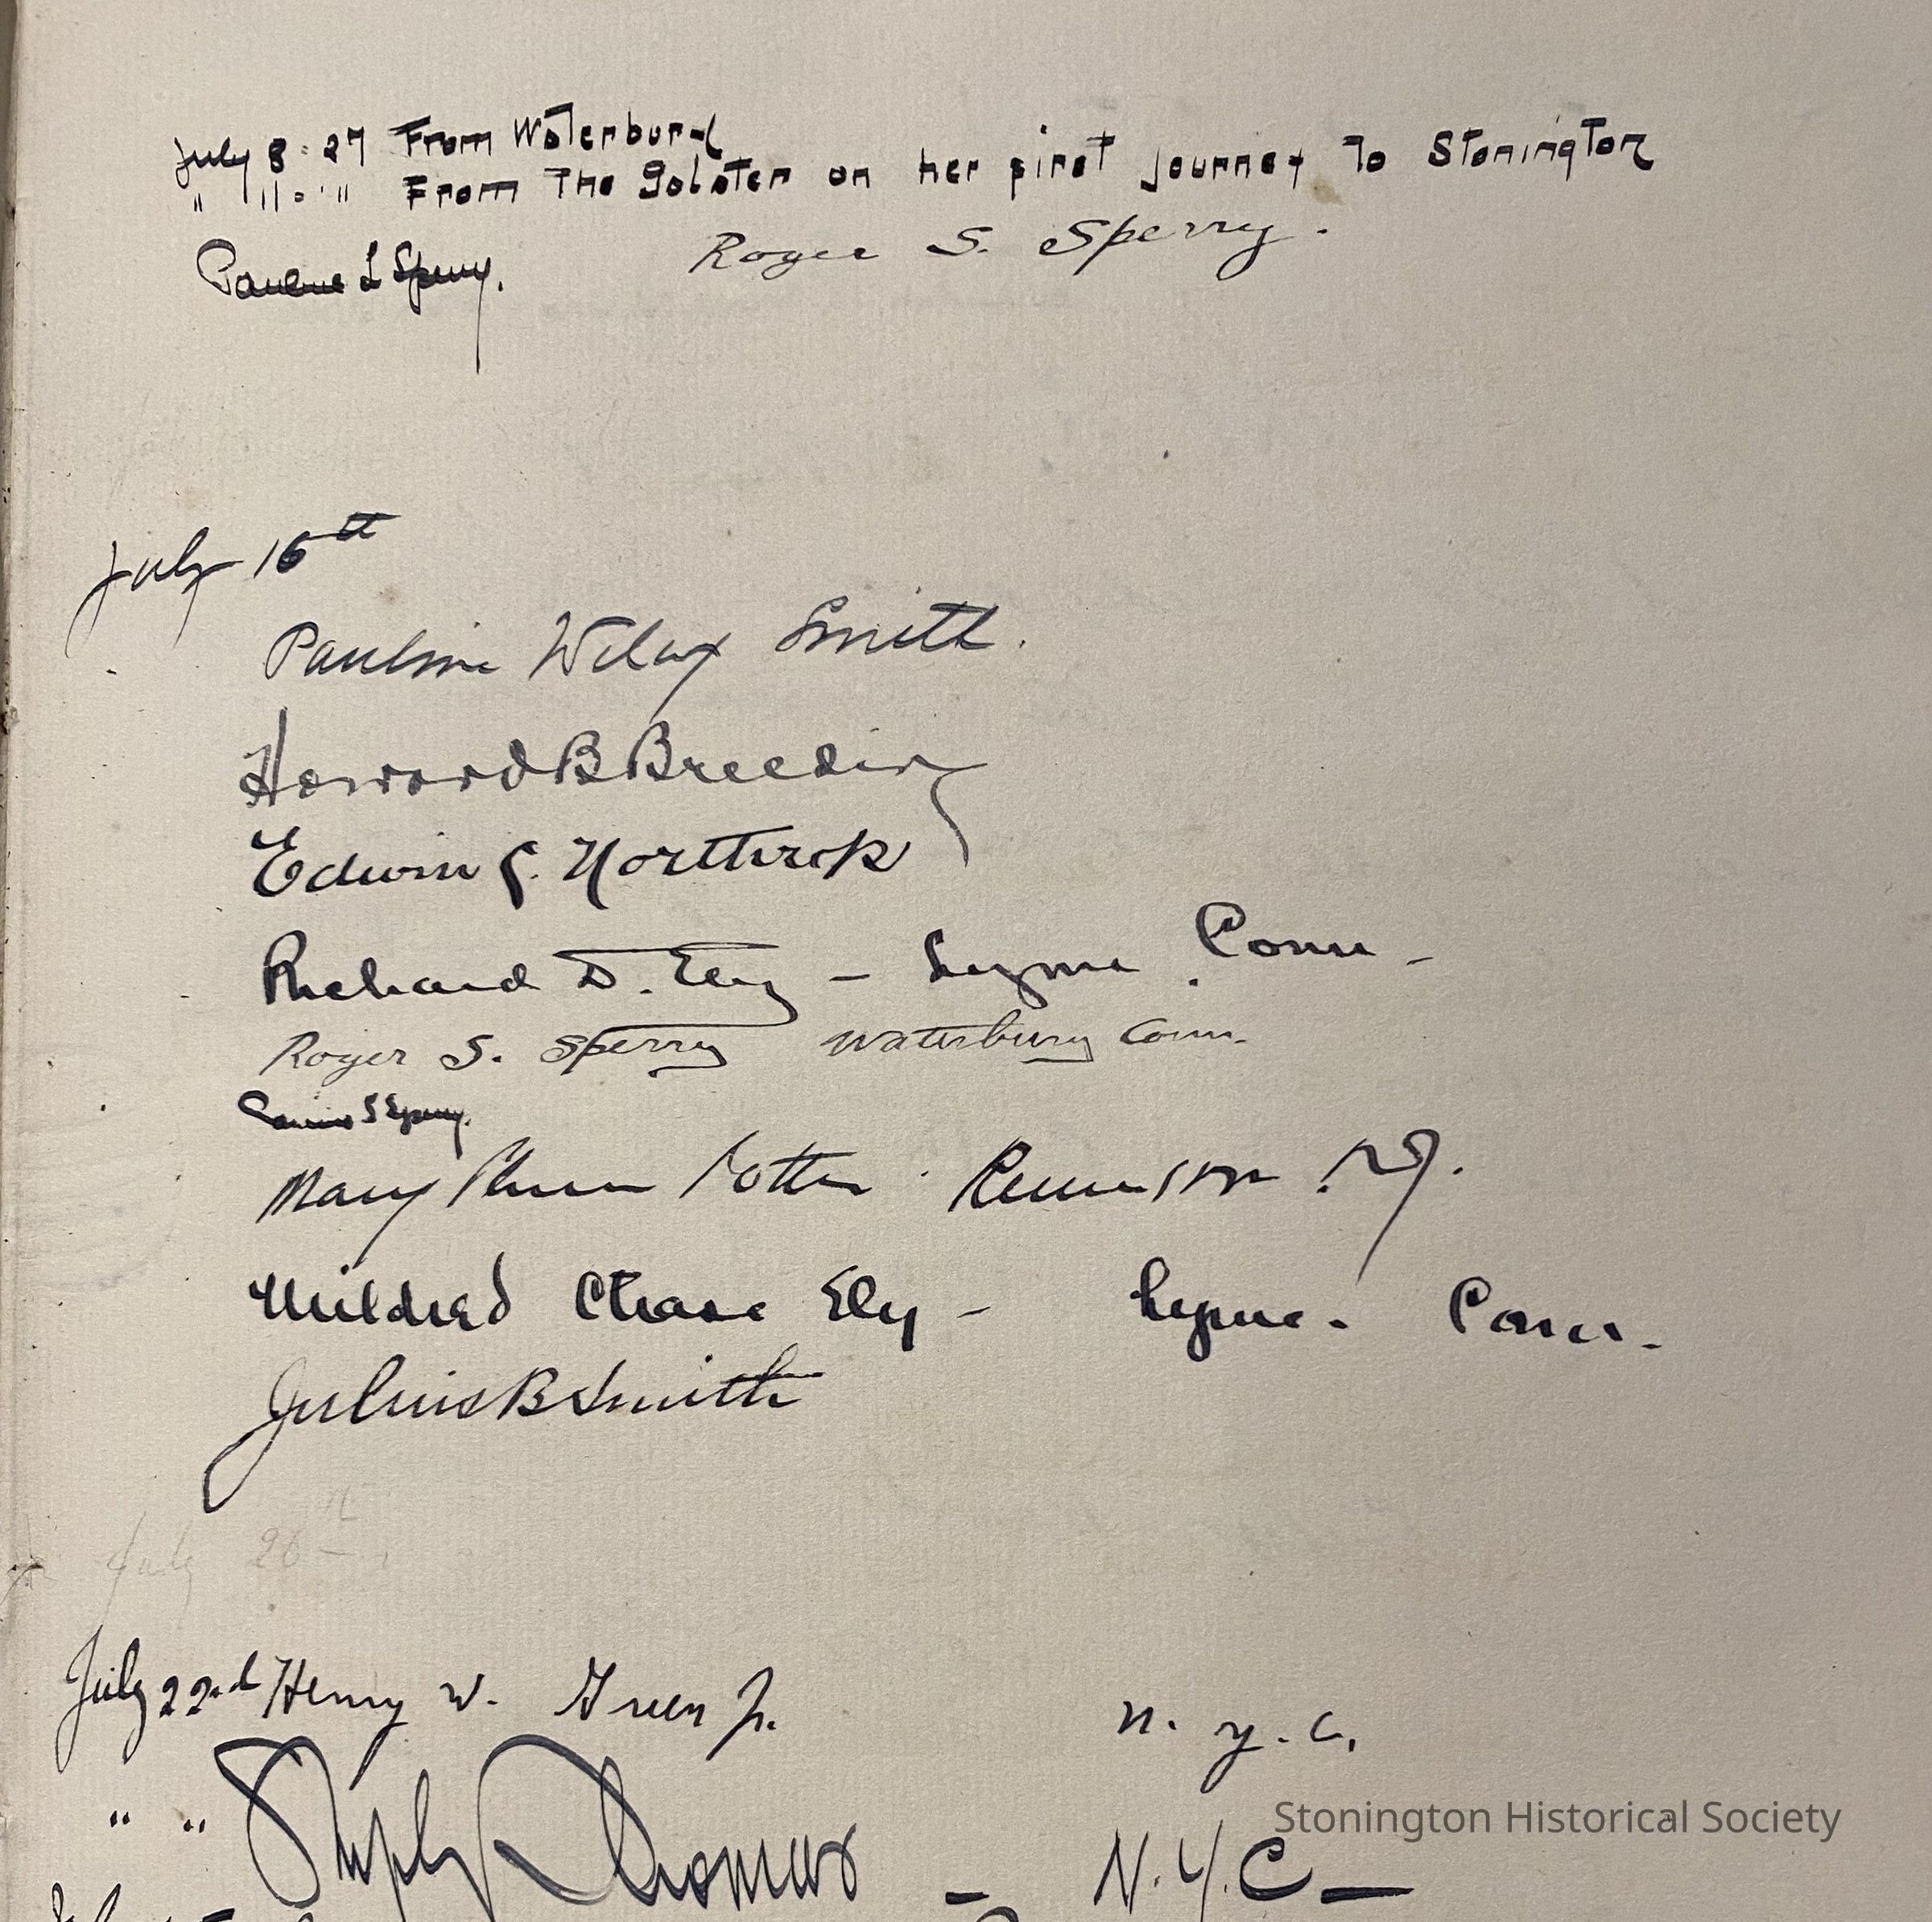 July 8 · 27 From Waterbury
" 11 · " From The Lobster on her first journey to Stonington
Pauline S Sperry. Roger S. Sperry.
July 16th
Pauline Wilcox Smith.
Howard B Breeding
Edwin S. Northrop
Richard D. Ely - Lyme. Conn -
Roger S. Sperry Waterbury Conn.
Pauline S Sperry.
Mary Potter
Mildred Chase Ely - Lyme. Conn.
Julius B Smith
July 26th
July 22nd Henry W. Green Jr. N. Y. C.
" " Thomas - N.Y.C -
Stonington Historical Society